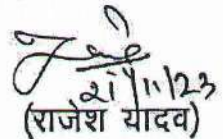 21/11/23
(राजेश यादव)